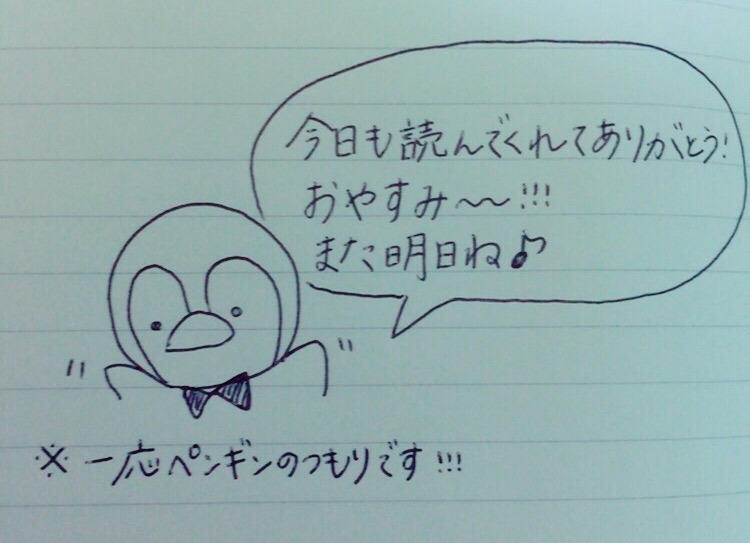 今日も読んでくれてありがとう!
おやすみ〜〜!!!
また明日ね♪
※一応ペンギンのつもりです!!!